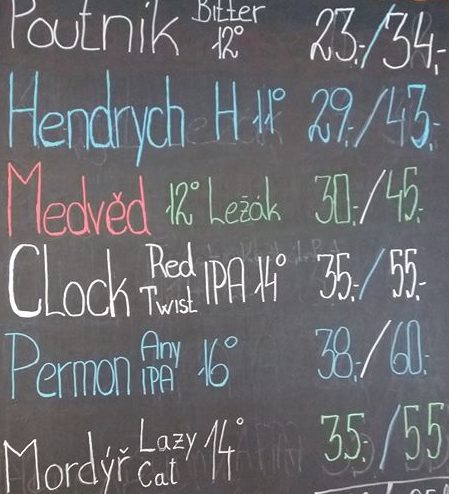 Poutník Bitter 12° 23.-/34.-
Hendrych H 11° 29.-/43.-
Medvěd 12° Ležák 30.-/45.-
CLock Red Twist IPA 14° 35.-/55.-
Permon Any IPA 16° 38.-/60.-
Mordýř Lazy Cat 14° 35.-/55